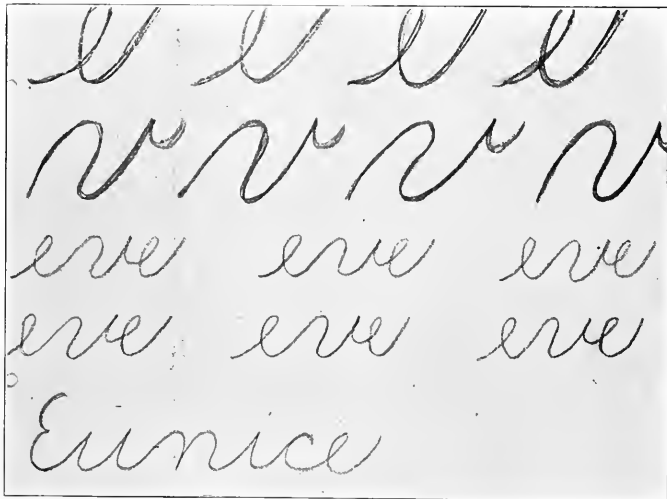 e e e e
v v v v
eve eve eve
eve eve eve
Eunice